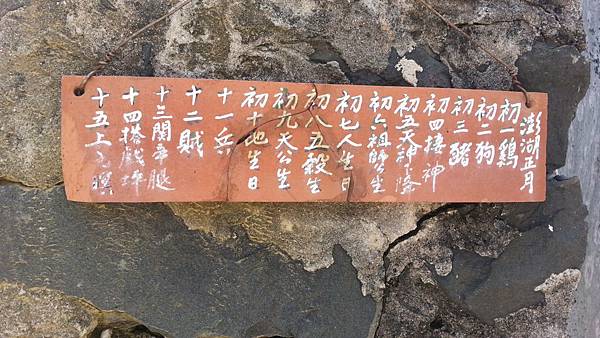 澎湖正月
初一鷄
初二狗
初三豬
初四接神
初五天神下降
初六祖師公生
初七人生日
初八五穀生
初九天公生
初十地生日
十一兵
十二賊
十三關帝腿
十四搭戲坪
十五上元暝